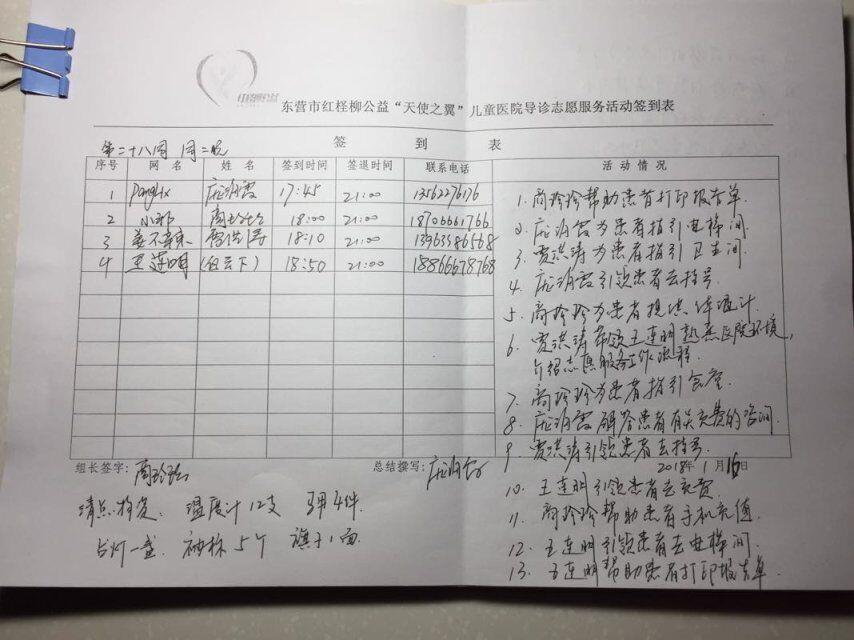 东营市红柽柳公益“天使之翼”儿童医院导诊志愿服务活动签到表
签 到 表
第二十八周 周二晚
序号 网 名 姓 名 签到时间 签退时间 联系电话 活 动 情 况
1 17:45 21:00 13562276176
2 18:00 21:00 18706661766
3 18:10 21:00 13963386568
4 王莲明 18:50 21:00 18866678768
1. 商玲玲帮助患者打印报告单.
2. 庞润霞为患者指引电梯间.
3. 贾洪涛为患者指引卫生间.
4. 庞润霞引领患者去挂号
5. 商玲玲为患者提供体温计.
6. 贾洪涛带领王连明熟悉医院环境,
介绍志愿服务工作流程.
7. 商玲玲为患者指引食堂
8. 庞润霞解答患者有关交费的咨询.
9. 贾洪涛引领患者去挂号.
组长签字: 商玲玲 总结撰写: 庞润霞 2018年1月16日
10. 王连明引领患者去交费.
11. 商玲玲帮助患者手机充值.
12. 王连明引领患者去电梯间.
13. 王连明帮助患者打印报告单.
清点物资. 温度计12支 马甲4件.
台灯一盏. 袖标5个 旗子1面.